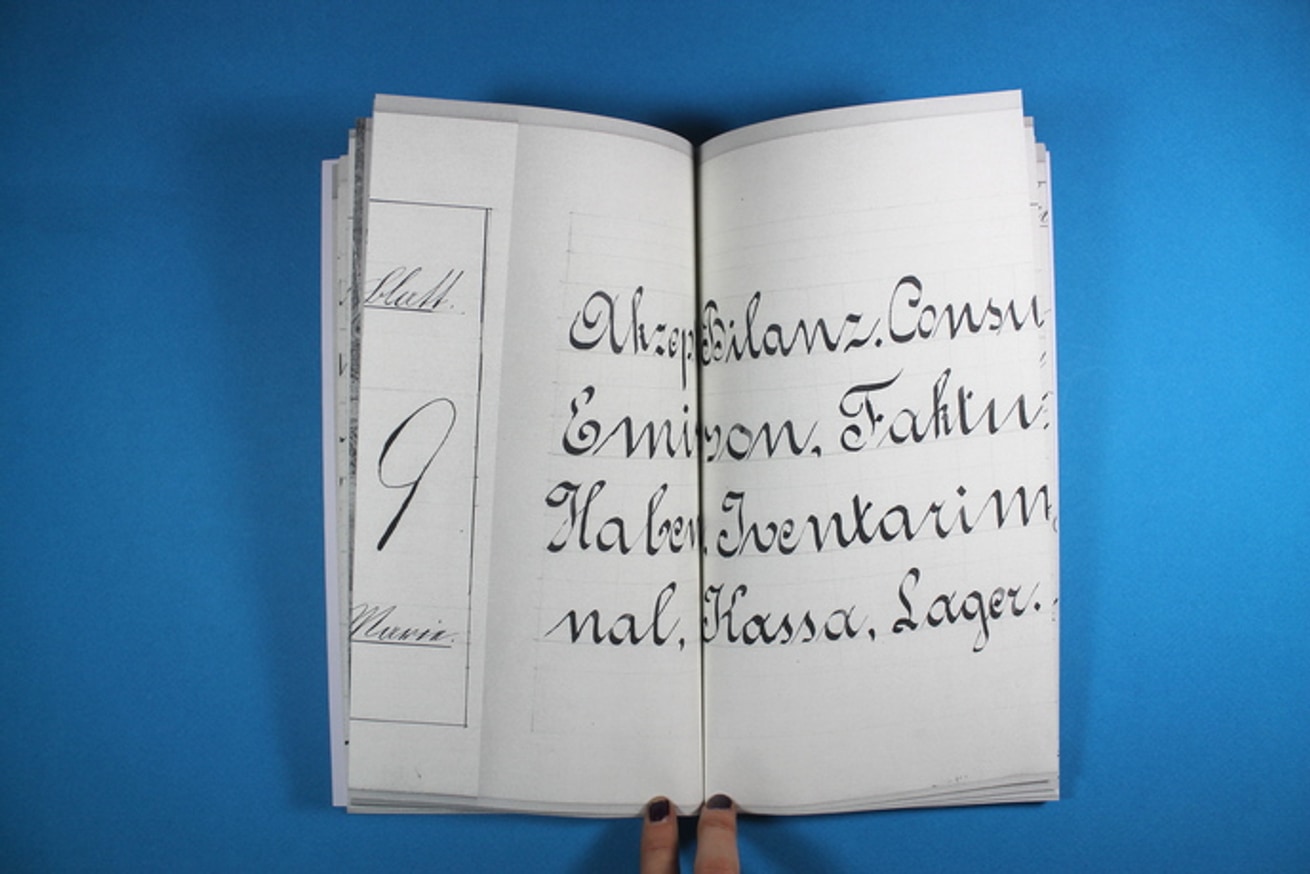 blatt.
9
Marie.
Akzep Bilanz. Consu
Emison, Faktu
Haben. Iventarim
nal, Kassa, Lager.